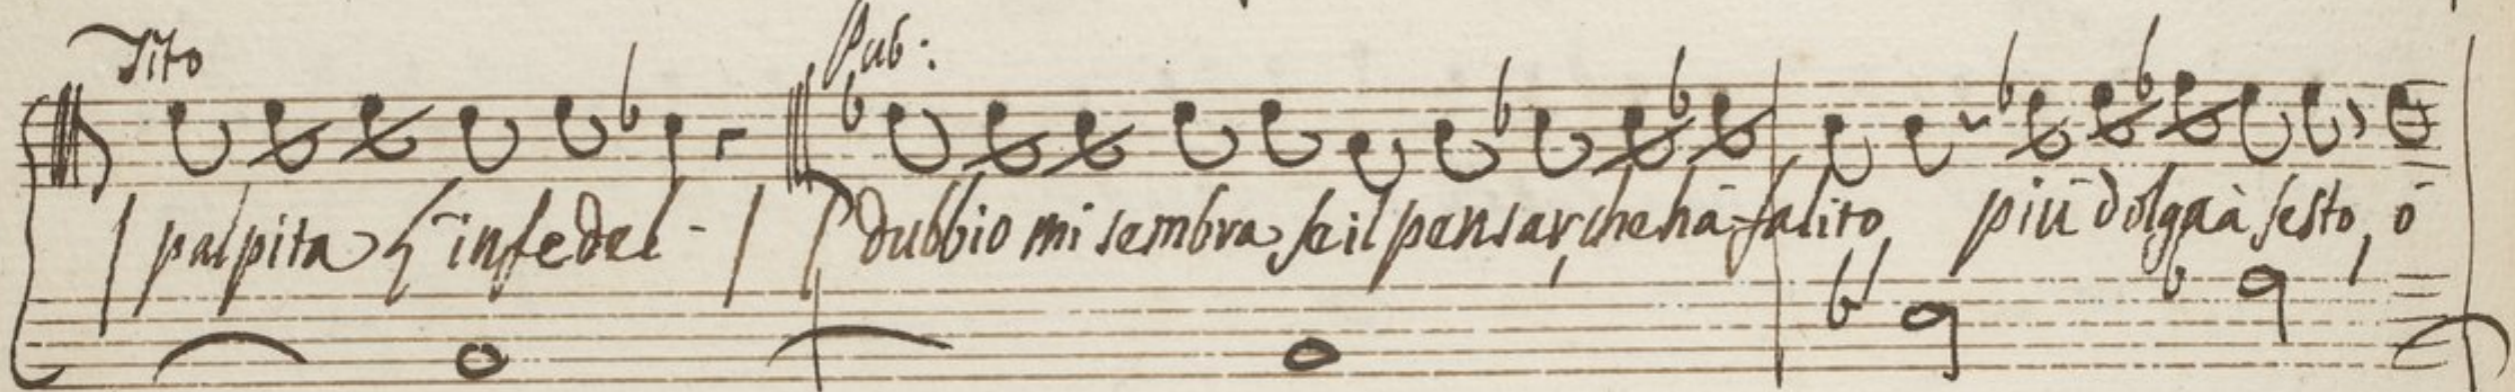 Tito Pub:
palpita l'infedel - dubbio mi sembra, se il pensar, che hà falito, più dolga à Sesto, ò